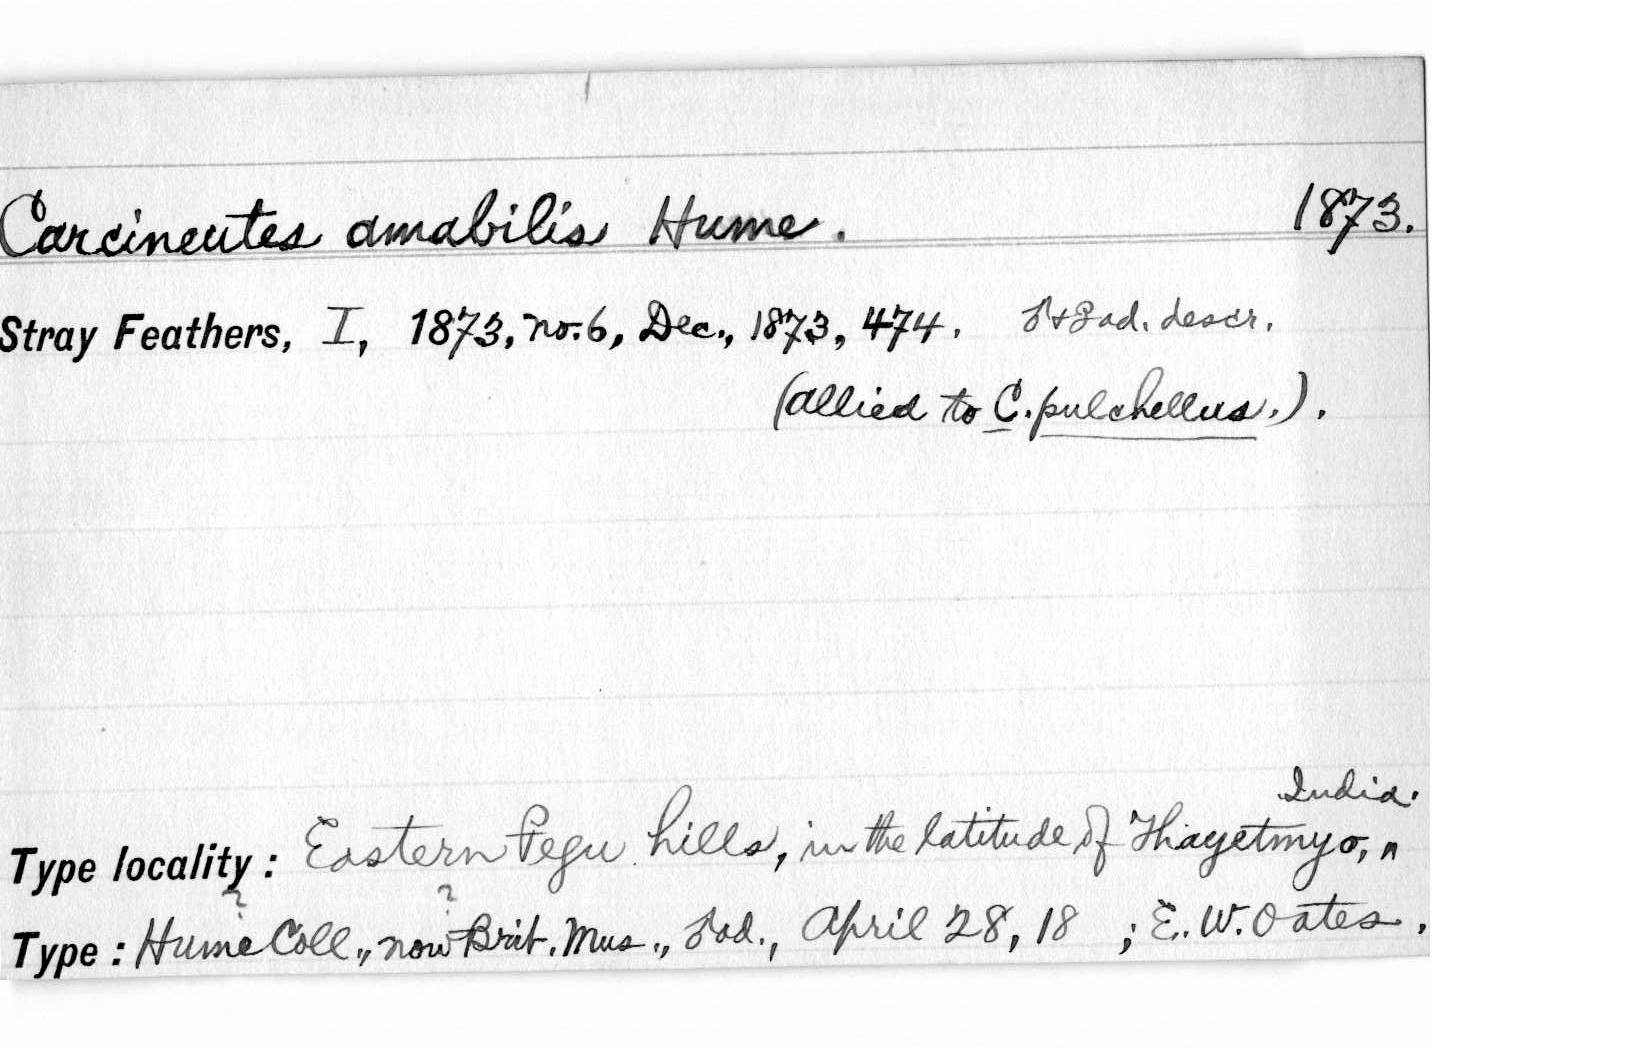 Carcineutes amabilis Hume. 1873.
Stray Feathers, I, 1873, no. 6, Dec., 1873, 474. ♂+♀ad. descr.
(allied to C. pulchellus.).
India.
Type locality: Eastern Pegu hills, in the latitude of Thayetmyo, "
? ?
Type: Hume Coll., now Brit. Mus., ♂ad., April 28, 18 ; E. W. Oates.